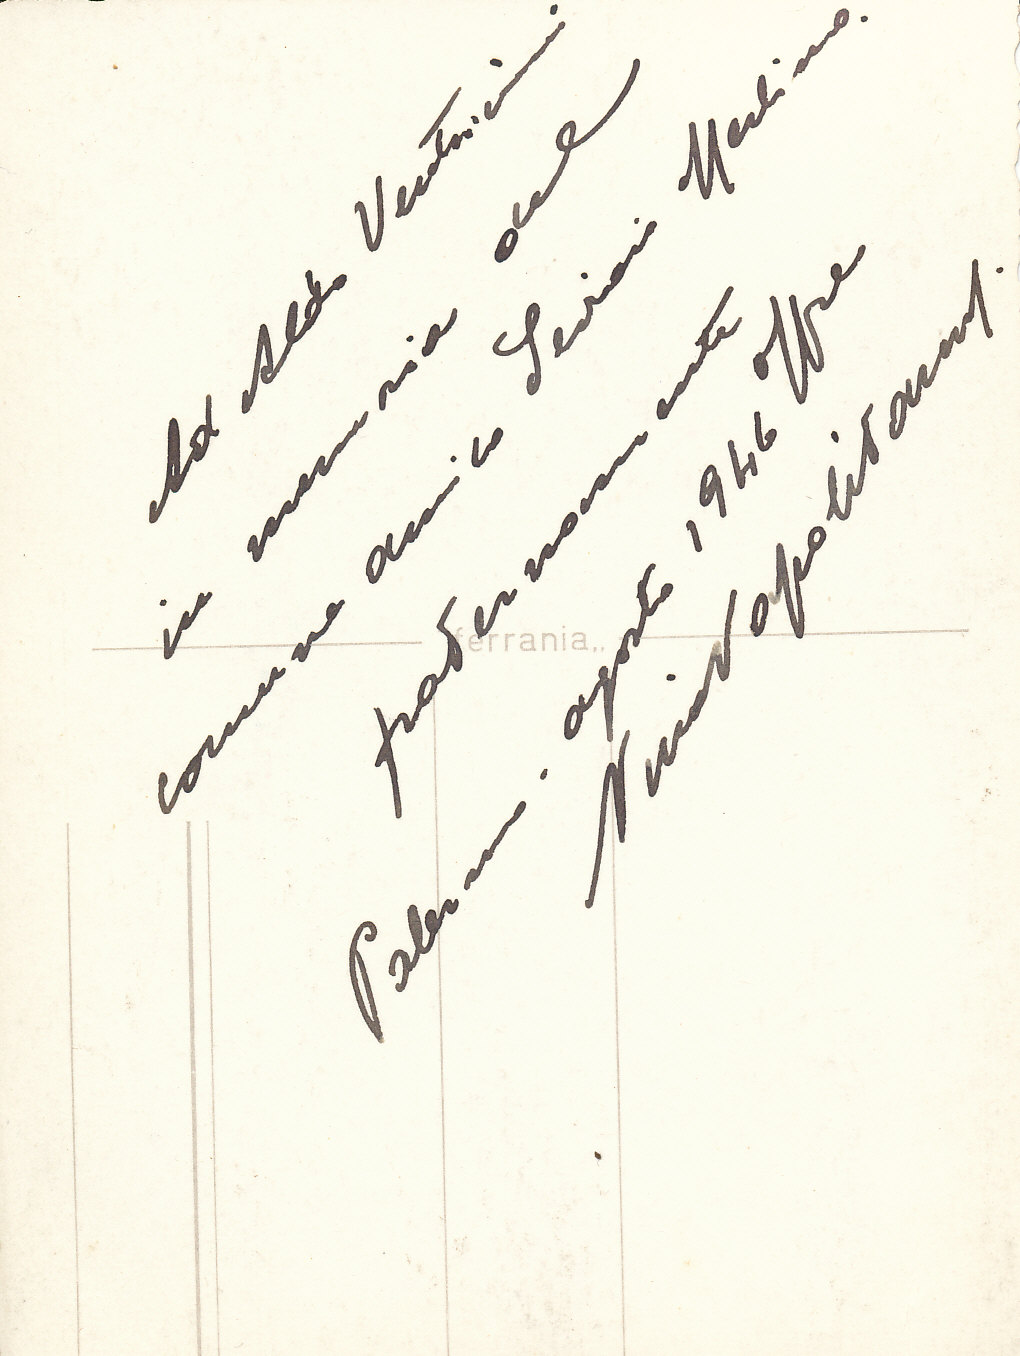 Ad Aldo Ventricini
in memoria del
comune amico Livio Merlino.
fraternamente
offre
Palermo. agosto 1946
Nino Napolitano.
"ferrania"